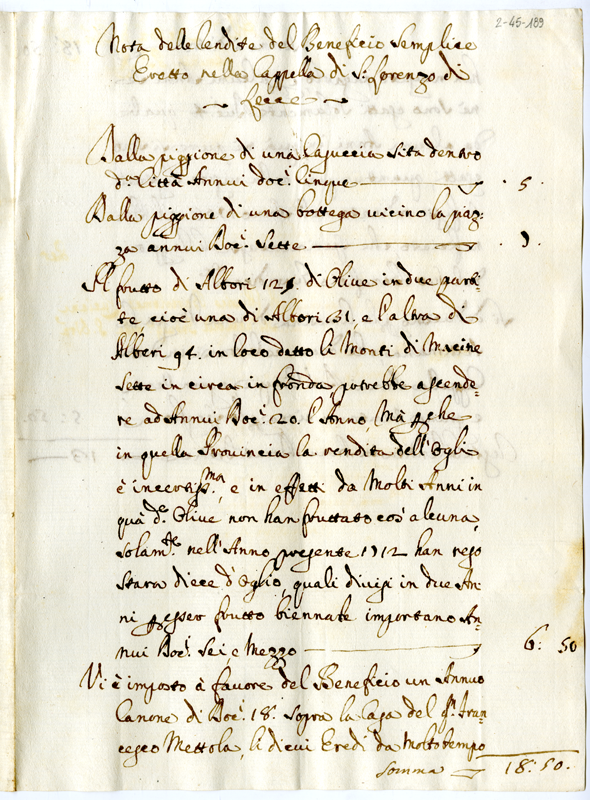 2-45-189
Nota delle Rendite del Beneficio Semplice
Eretto nella Cappella di S. Lorenzo di
Lecce
Dalla piggione di una Casuccia sita dentro
d.a Città Annui doc.i Cinque 5.
Dalla piggione di una bottega vicino la piaz:
za annui Doc.i Sette 7.
Il frutto di Albori 125 di Olive in due parti-
te, cioè una di Albori 31, e l'altra di
Alberi 94. in loco detto li Monti di Macine
Sette in circa in fronda, potrebbe ascende-
re ad Annui Doc.i 20. l'Anno Mà perche
in quella Provincia la rendita dell'Ogli
è incertiss.ma, e in effetti da Molti Anni in
quà d.e Olive non han fruttato cos' alcuna,
solam.te nell'Anno presente 1712 han reso
Stara diece d'Oglio, quali divisi in due An-
ni p esser frutto biennale importano An-
nui Doc.i Sei, e Mezzo 6: 50
Vi è imposto à favore del Beneficio un Annuo
Canone di Doc.i 18. sopra la Casa del q.m Fran
cesco Mettola, li di cui Eredi da Molto tempo
Somma 18: 50.